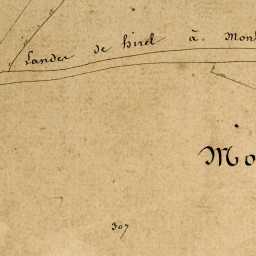 Landes de hirel à Mont
Mo
307